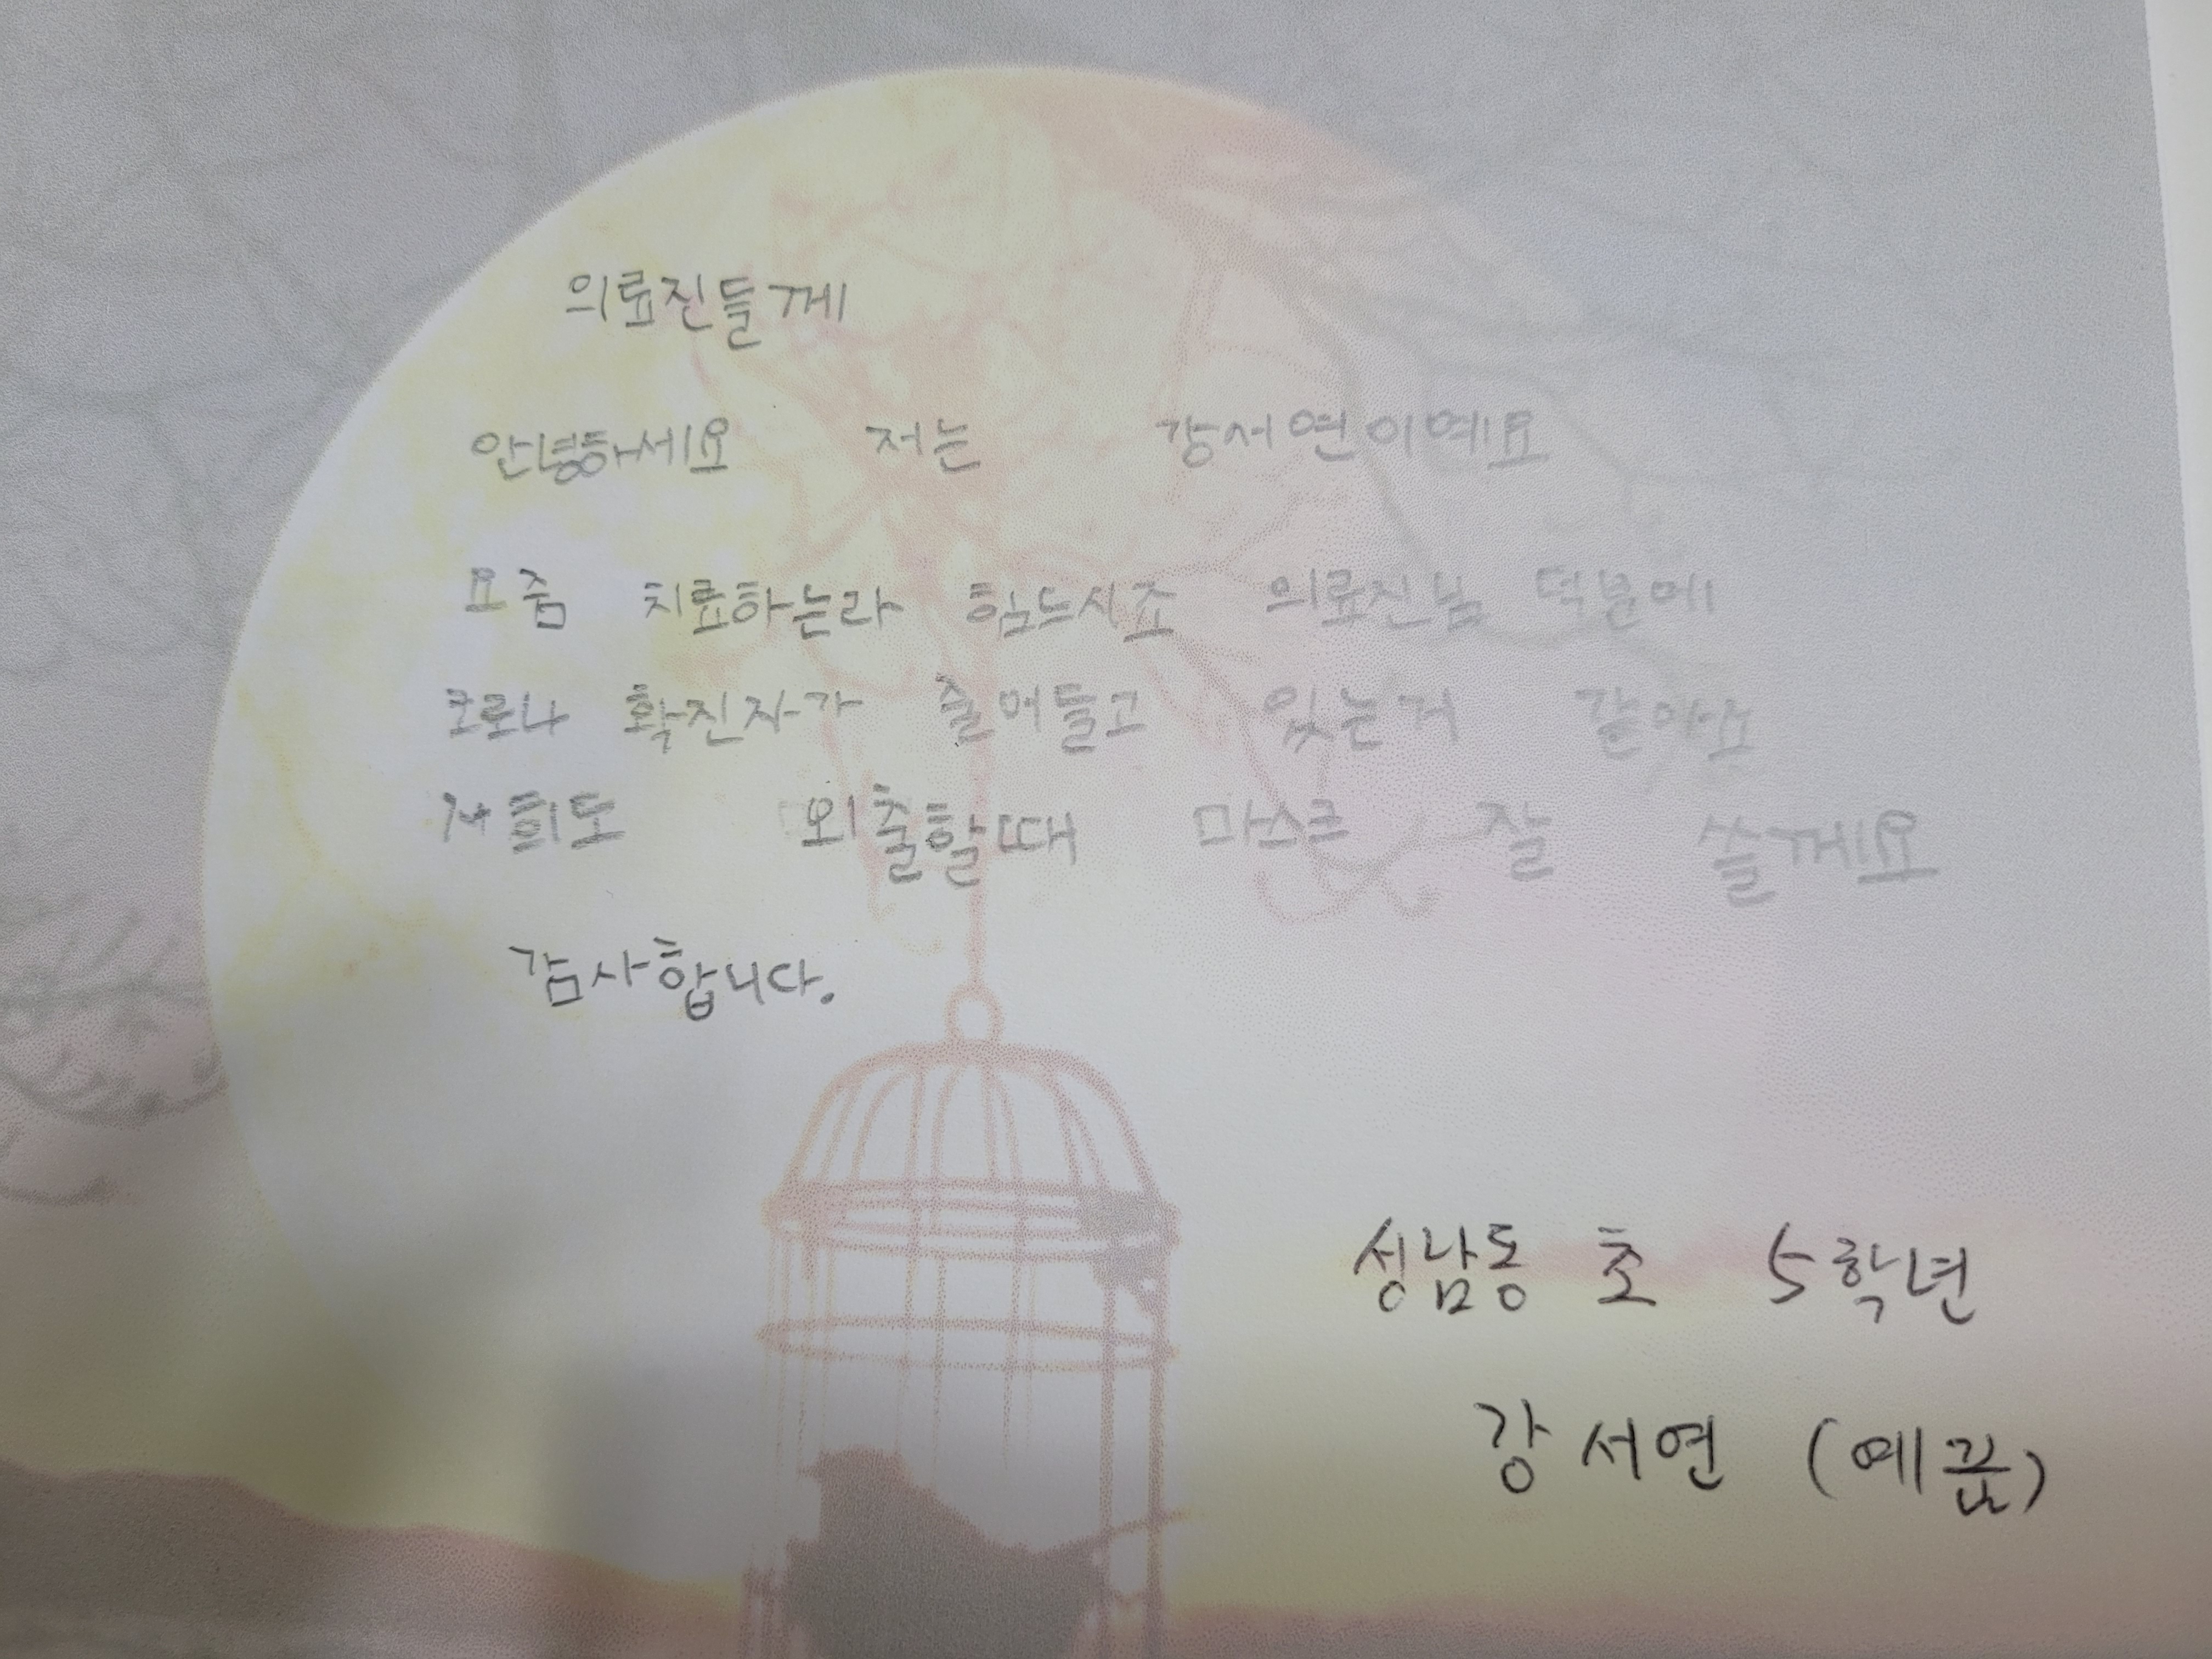 의료진들께
안녕하세요 저는 강서연이예요
요줌 치료하는라 힘드시죠 의료진님 덕분에
코로나 확진자가 줄어들고 있는거 같아요
저희도 외출할때 마스크 잘 쓸께요
감사합니다.
성남동 초 5학년
강서연 (예꿈)